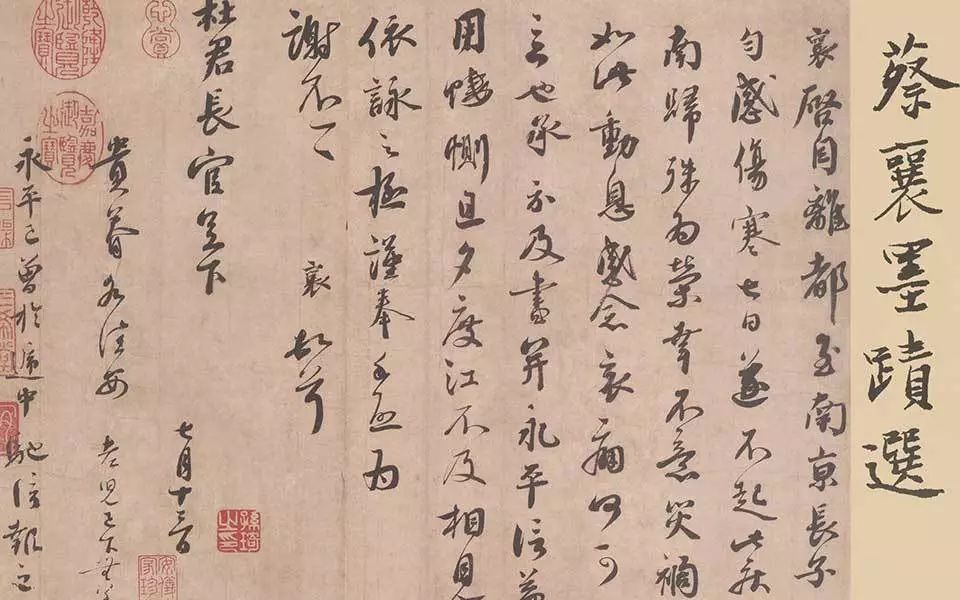 蔡襄墨蹟選
襄啓自離都至南京長子
勻感傷寒七日遂不起此疾
南歸殊為榮幸不意災禍
如此動息感念哀痛何可
言也承示及書并永平信益
用悽惻旦夕度江不及相見
依詠之極謹奉手啓為
謝不一一 襄頓首
杜君長官足下
七月十三日
貴眷各佳安 老兒已下無
永平已曾於遞中馳信報之
嘉慶御覽之寶